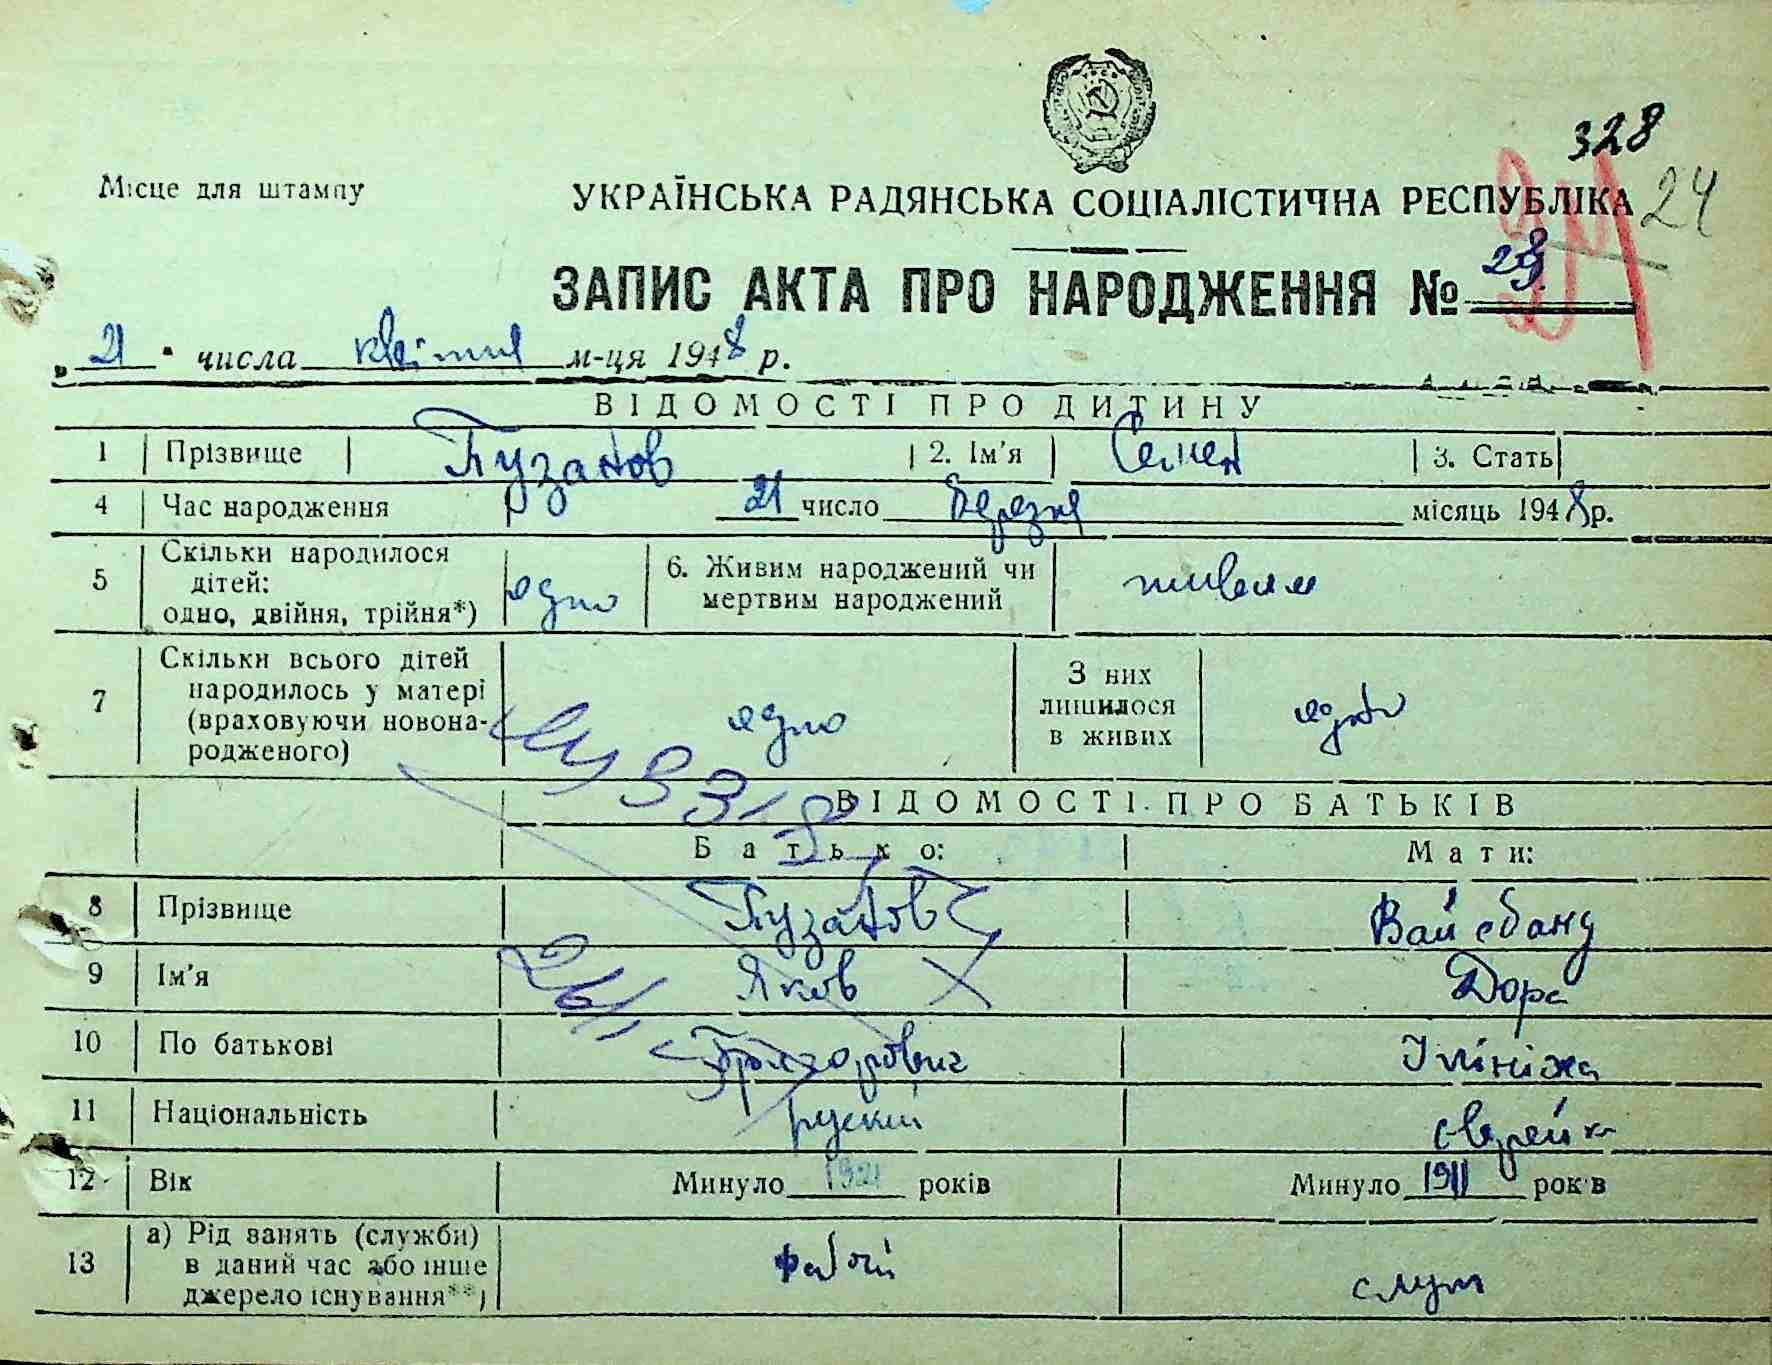 328
Місце для штампу
УКРАЇНСЬКА РАДЯНСЬКА СОЦІАЛІСТИЧНА РЕСПУБЛІКА 24
ЗАПИС АКТА ПРО НАРОДЖЕННЯ №
„21" числа квітня м-ця 1948 р.
ВІДОМОСТІ ПРО ДИТИНУ
1 Прізвище Пузанов 2. Ім'я Семен 3. Стать
4 Час народження 21 число березня місяць 1948 р.
5 Скільки народилося дітей: одно, двійня, трійня*) одно 6. Живим народжений чи мертвим народжений живим
7 Скільки всього дітей народилось у матері (враховуючи новонародженого) одно З них лишилося в живих одно
ВІДОМОСТІ ПРО БАТЬКІВ
Батько: Мати:
8 Прізвище Пузанов Вайсбанд
9 Ім'я Яков Дора
10 По батькові Григорович
11 Національність руский єврейка
12 Вік Минуло 1921 років Минуло 1911 років
13 а) Рід занять (служби) в даний час або інше джерело існування**) рабочий служ